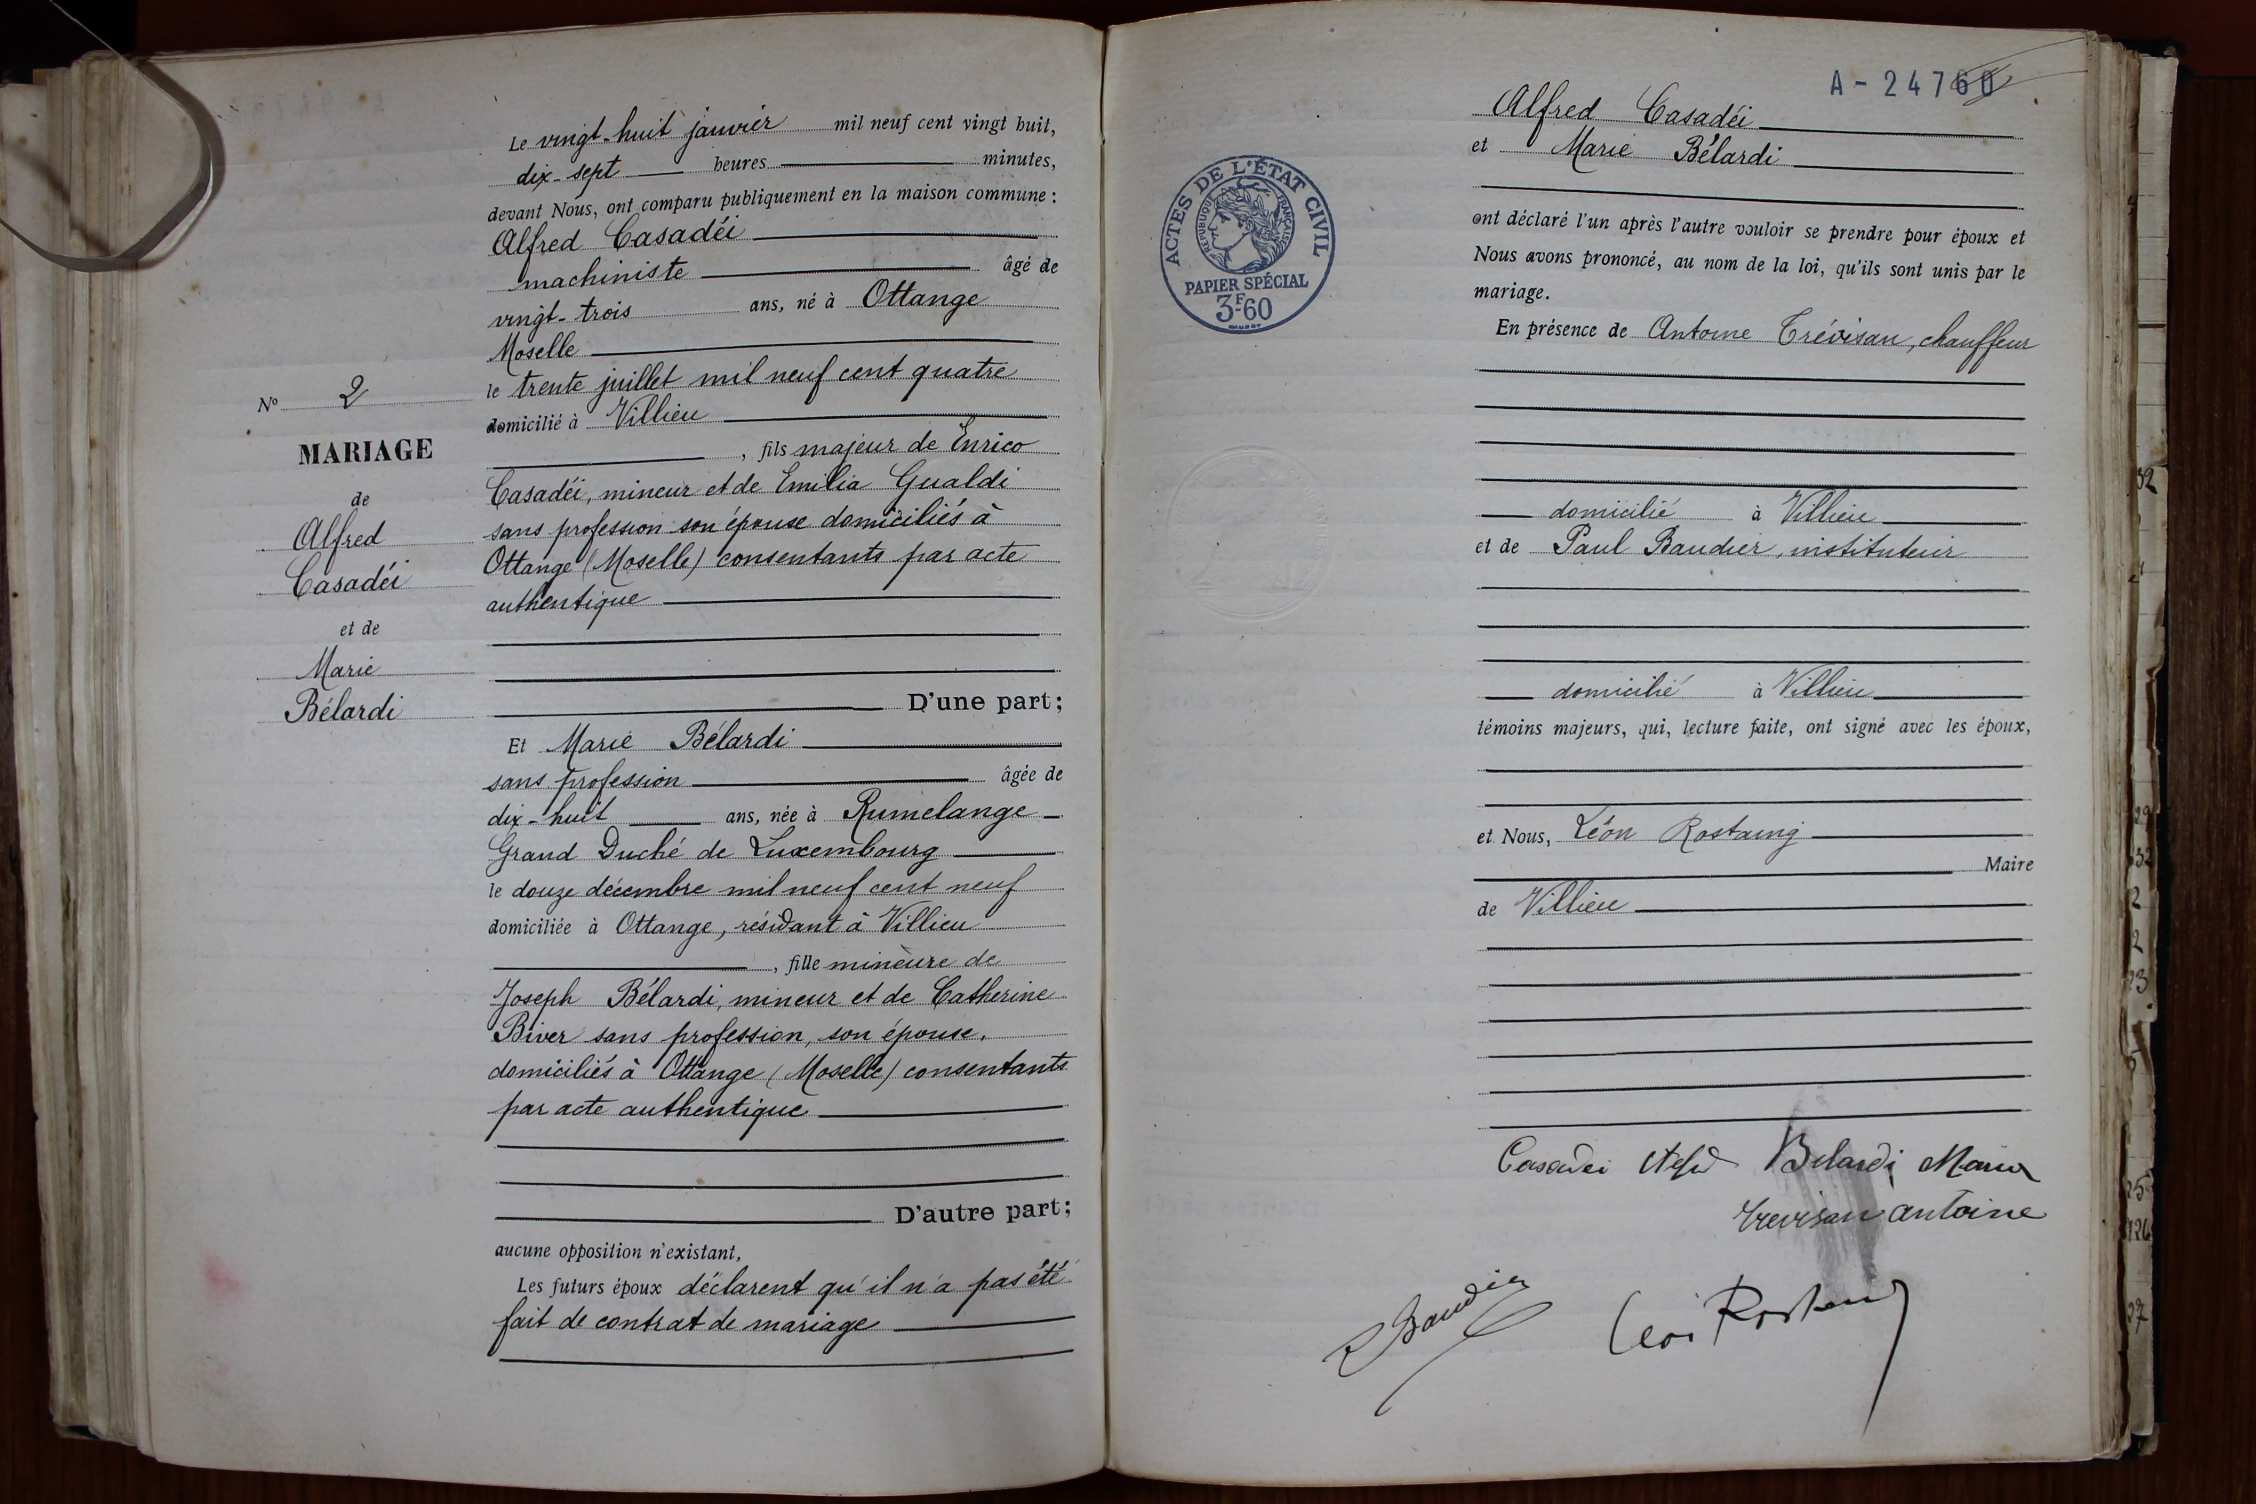 Le vingt-huit janvier mil neuf cent vingt huit,
dix-sept heures minutes,
devant Nous, ont comparu publiquement en la maison commune :
Alfred Casadéi
machiniste âgé de
vingt-trois ans, né à Ottange
Moselle
le trente juillet mil neuf cent quatre
domicilié à Villieu
, fils majeur de Enrico
Casadéi, mineur et de Emilia Gualdi
sans profession son épouse domiciliés à
Ottange (Moselle) consentants par acte
authentique
D'une part;
Nº 2
MARIAGE
de
Alfred
Casadéi
et de
Marie
Bélardi
Et Marie Bélardi
sans profession âgée de
dix-huit ans, née à Rumelange
Grand Duché de Luxembourg
le douze décembre mil neuf cent neuf
domiciliée à Ottange, résidant à Villieu
, fille mineure de
Joseph Bélardi, mineur et de Catherine
Biver sans profession, son épouse.
domiciliés à Ottange (Moselle) consentants
par acte authentique
D'autre part;
aucune opposition n'existant,
Les futurs époux déclarent qu'il n'a pas été
fait de contrat de mariage
A-24760
ACTES DE L'ÉTAT CIVIL
RÉPUBLIQUE FRANÇAISE
PAPIER SPÉCIAL
3F.60
Alfred Casadéi
et Marie Bélardi
ont déclaré l'un après l'autre vouloir se prendre pour époux et
Nous avons prononcé, au nom de la loi, qu'ils sont unis par le
mariage.
En présence de Antoine Trévisan, chauffeur
domicilié à Villieu
et de Paul Baudier, instituteur
domicilié à Villieu
témoins majeurs, qui, lecture faite, ont signé avec les époux,
et Nous, Léon Rostaing
Maire
de Villieu
Casadei Alfred Belardi Maria
Trevisan antoine
P Baudier
Léon Rostaing